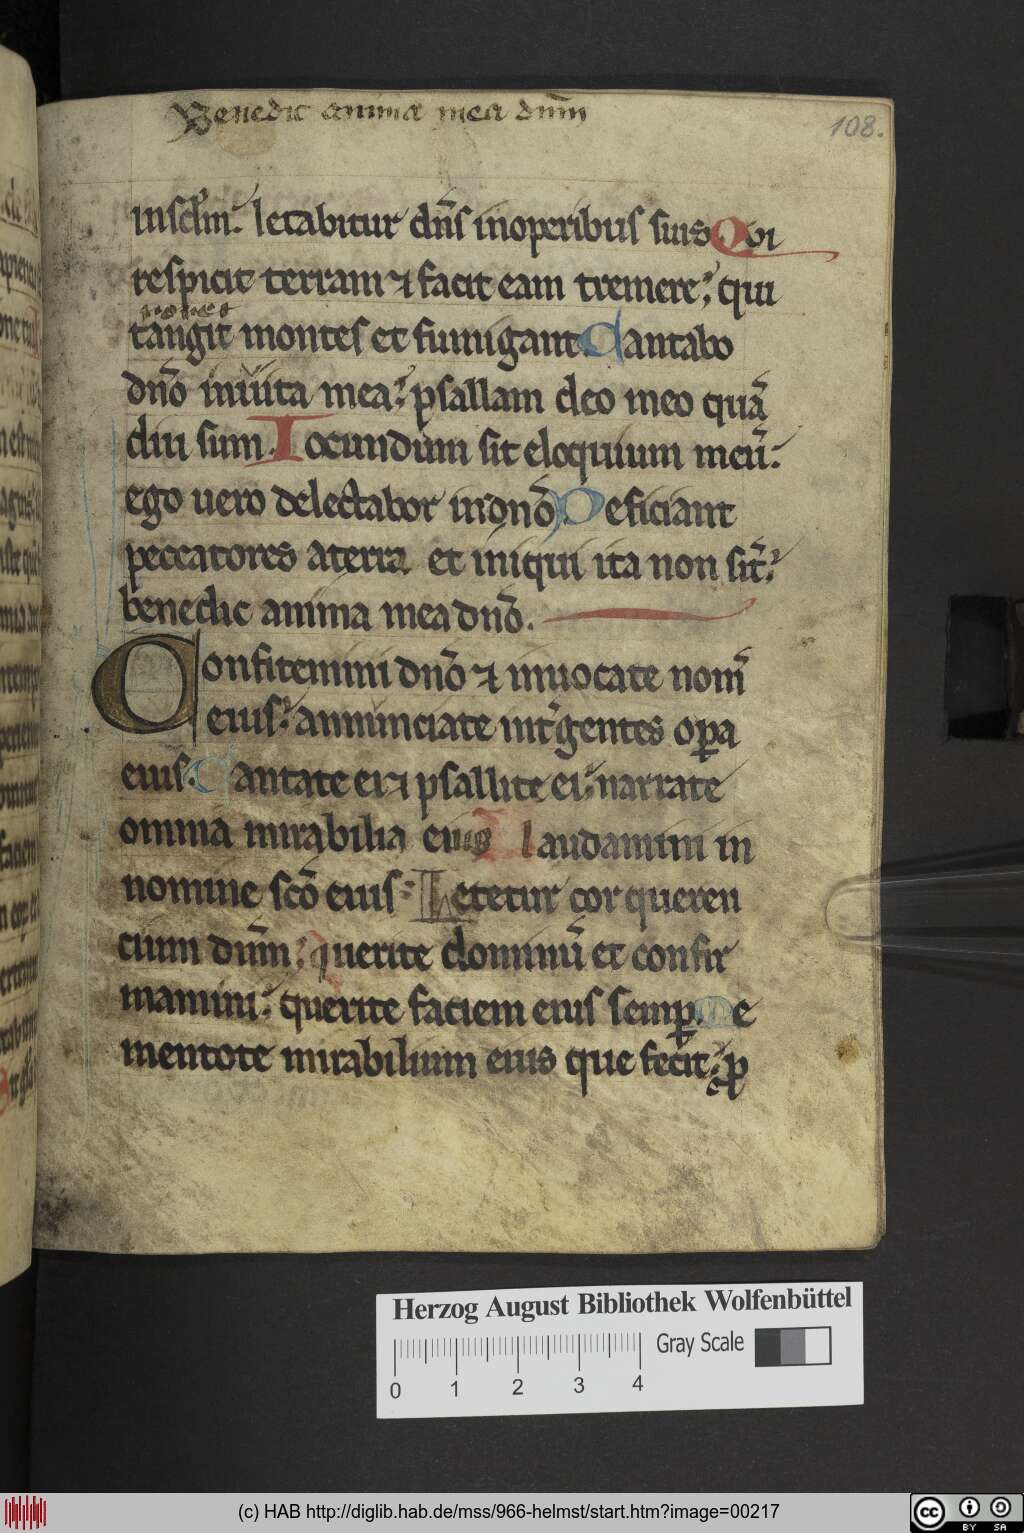 Benedic anima mea dnm̄
108.
in scl̄m. letabitur dn̄s in operibus suis Qvi
respicit terram ⁊ facit eam tremere; qui
tangit montes et fumigant. Cantabo
dn̄o in uita mea; psallam deo meo quā
diu sum. Iocundum sit eloquium meū.
ego uero delectabor in dn̄o. Deficiant
peccatores a terra et iniqui ita non sit̄;
benedic anima mea dn̄o.
Confitemini dn̄o ⁊ inuocate nom̄
eius; annunciate int̄ gentes oꝑa
eius. Cantate ei ⁊ psallite ei; narrate
omnia mirabilia eius laudamini in
nomine scō eius. Letetur cor queren
cium dnm̄; querite dominū et confir
mamini; querite faciem eius semꝑ. Me
mentote mirabilium eius que fecit; ꝓ
Herzog August Bibliothek Wolfenbüttel
Gray Scale
0 1 2 3 4
(c) HAB http://diglib.hab.de/mss/966-helmst/start.htm?image=00217
cc BY SA